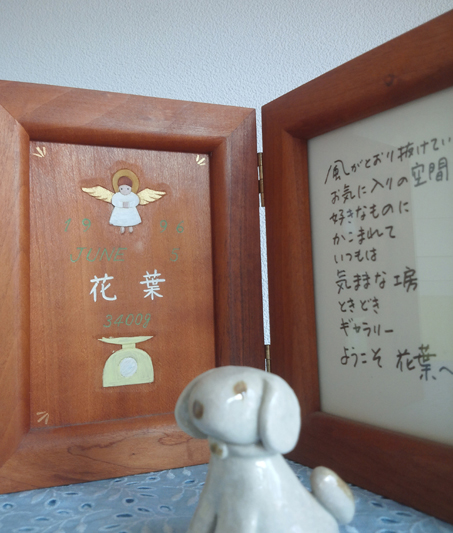 JUNE
花 葉
3400g
風がとおり抜けてい
お気に入りの空間
好きなものに
かこまれて
いつもは
気ままな工房
ときどき
ギャラリー
ようこそ 花葉へ